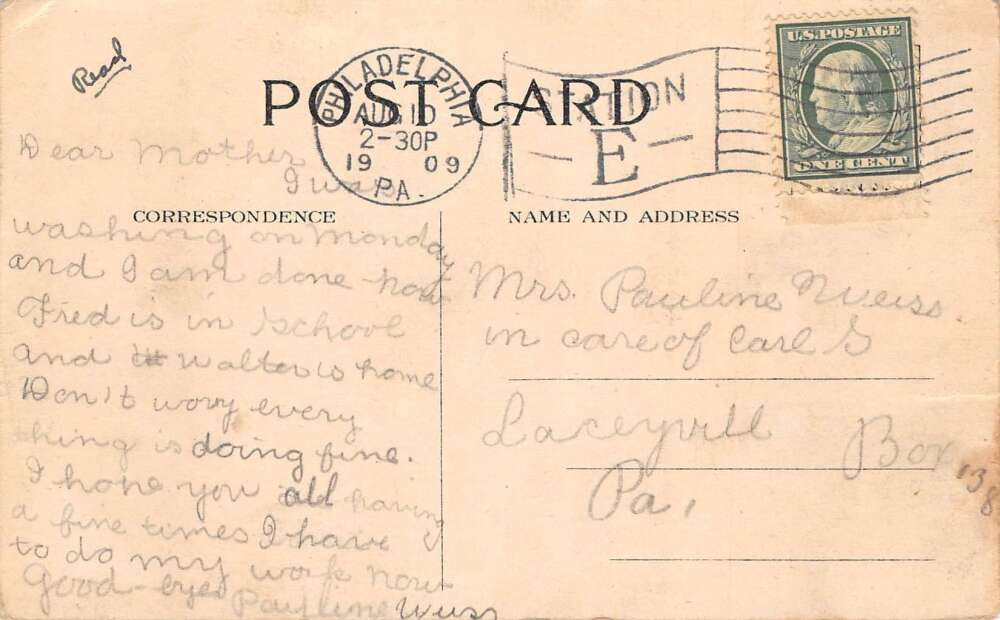 Read
POST CARD
PHILADELPHIA
AUG 10
2-30P
19 09
PA.
STATION
E
U.S. POSTAGE
ONE CENT
CORRESPONDENCE
NAME AND ADDRESS
Dear Mother
I was
washing on Monday
and I am done now
Fred is in school
and Walter is home
Don't wory every
thing is doing fine.
I hope you all having
a fine times I have
to do my work now
Good-byes
Pauline
Mrs. Pauline
in care of Carl G
Laceyvill Box 138
Pa,